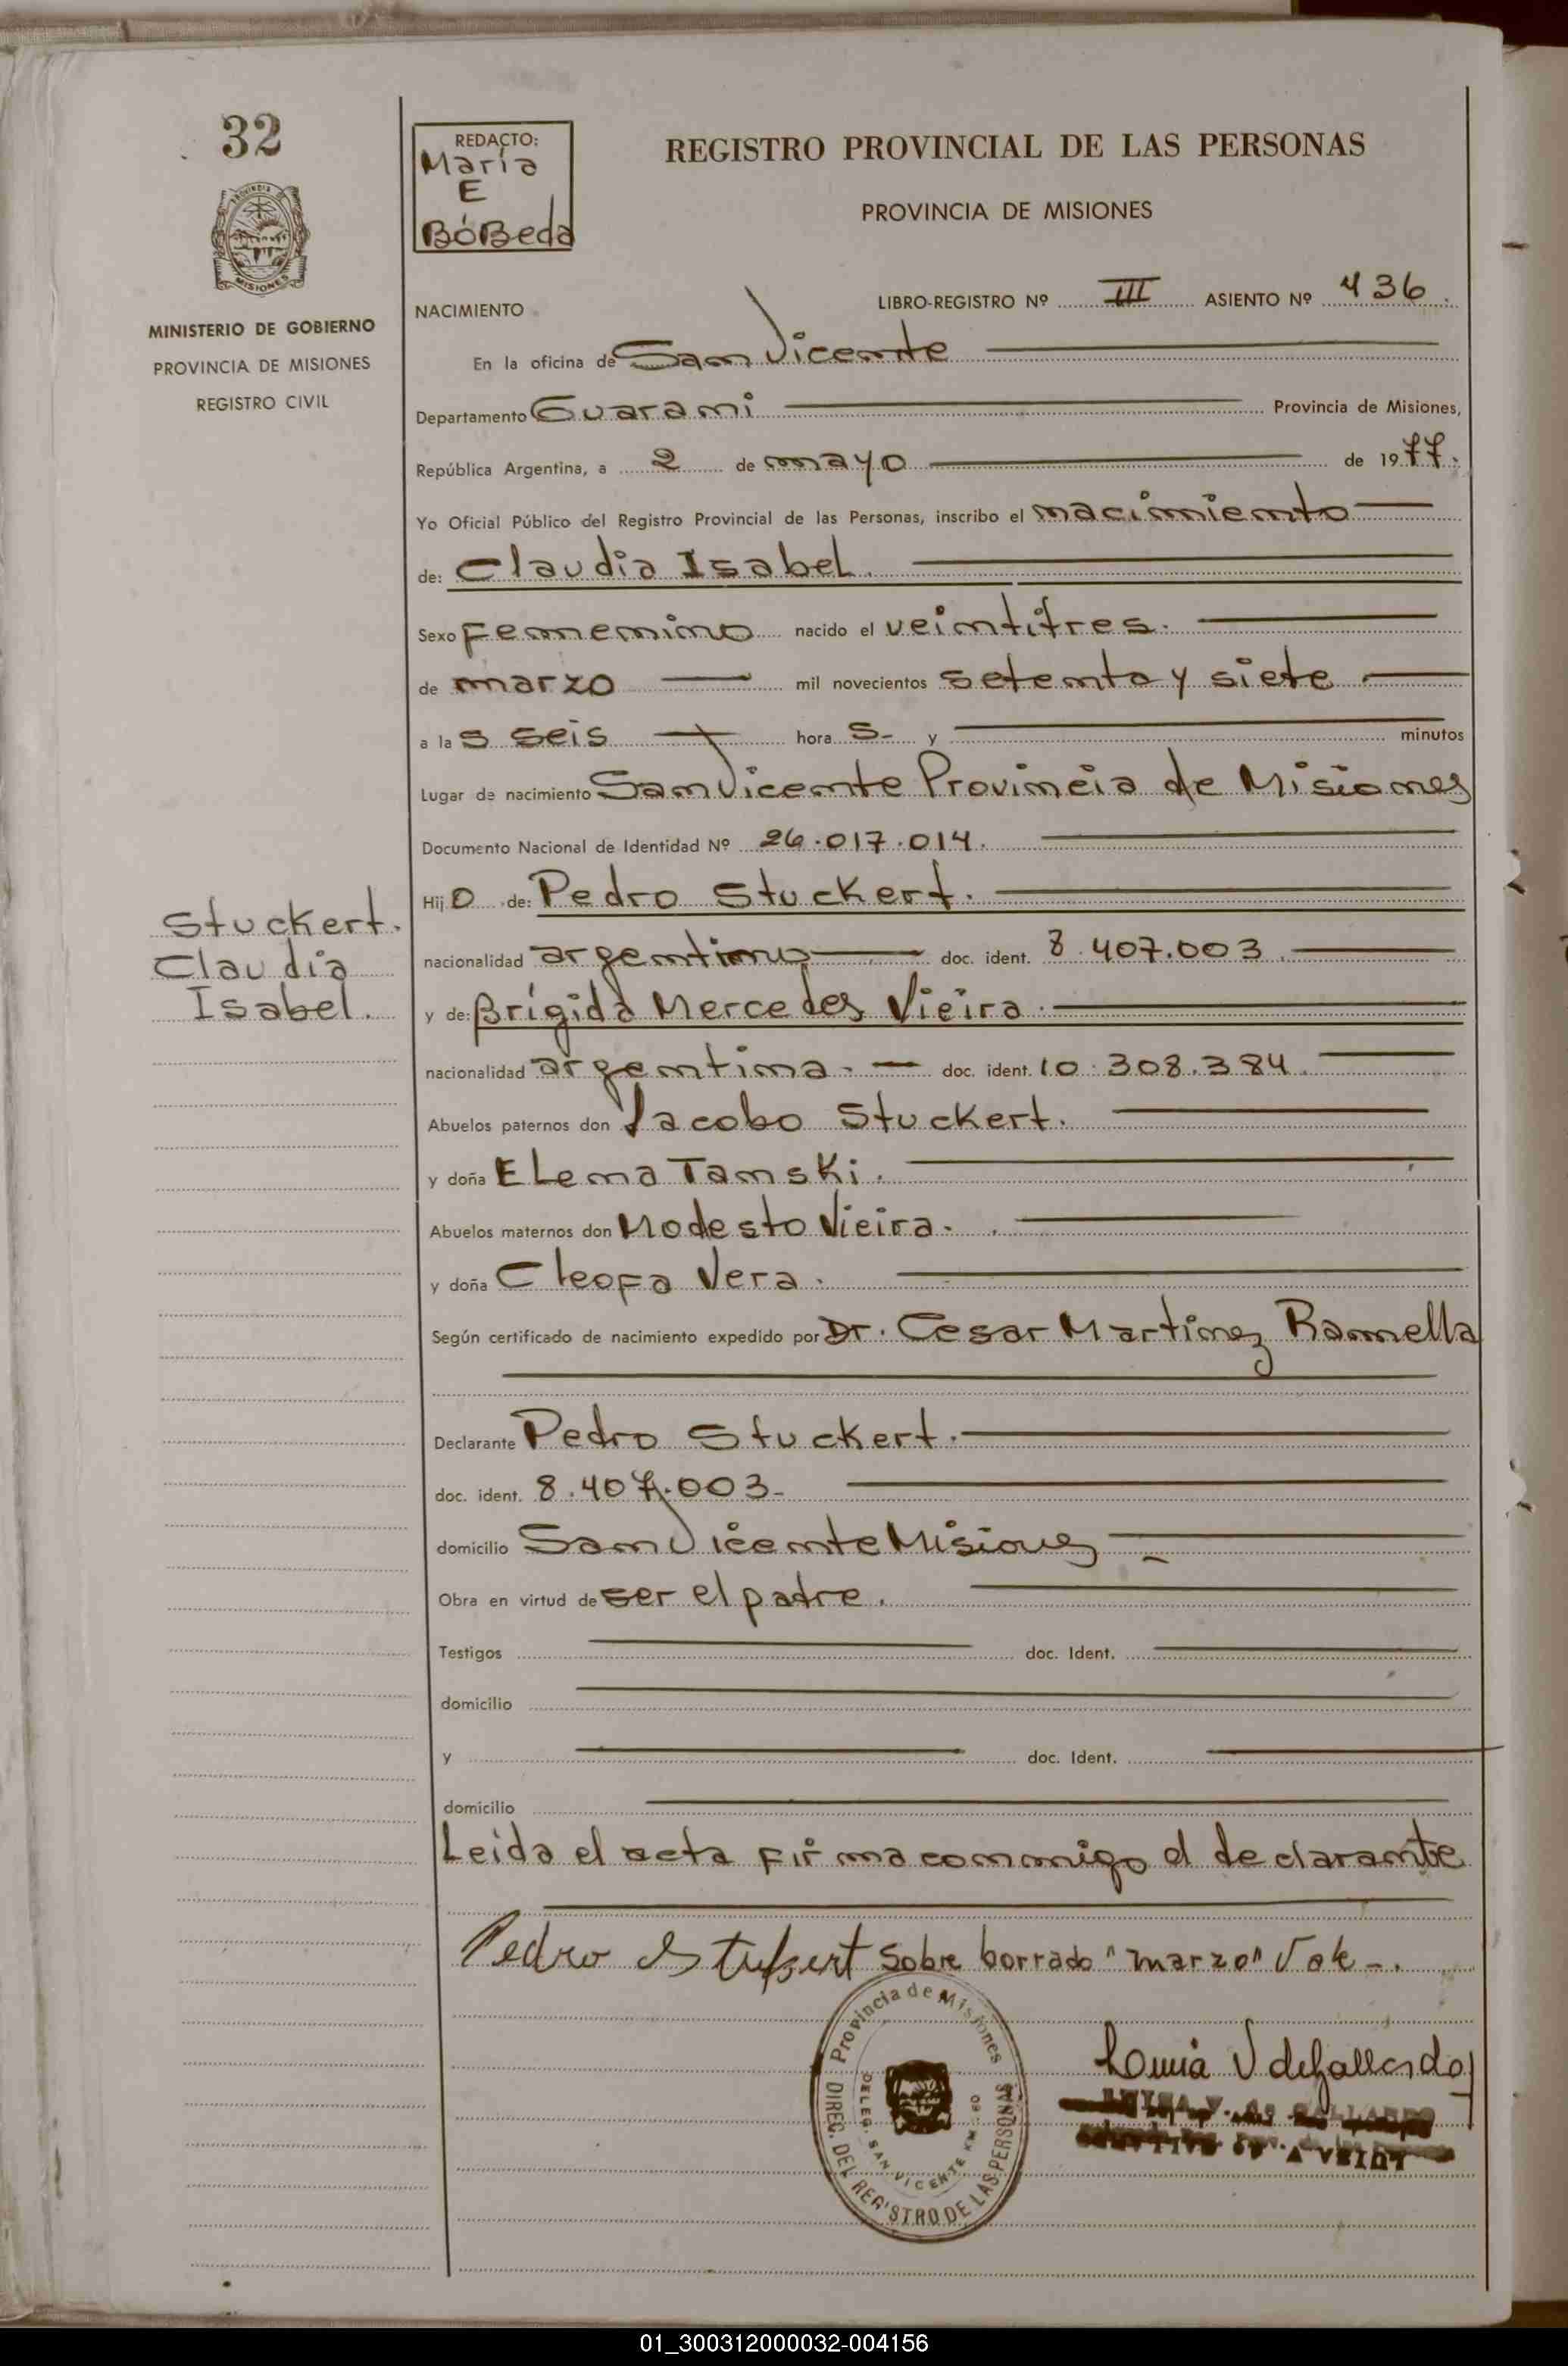 32
MISIONES
MINISTERIO DE GOBIERNO
PROVINCIA DE MISIONES
REGISTRO CIVIL
REDACTO:
María
E
BóBeda
REGISTRO PROVINCIAL DE LAS PERSONAS
PROVINCIA DE MISIONES
NACIMIENTO
LIBRO-REGISTRO Nº III ASIENTO Nº 436
En la oficina de San Vicente
Departamento Guarani Provincia de Misiones,
República Argentina, a 2 de mayo de 1977.
Yo Oficial Público del Registro Provincial de las Personas, inscribo el nacimiento
de: Claudia Isabel.
Sexo Femenino nacido el veintitres.
de marzo mil novecientos setenta y siete
a las seis horas y minutos
Lugar de nacimiento San Vicente Provincia de Misiones
Documento Nacional de Identidad Nº 26.017.014.
Hijo de: Pedro Stuckert.
Stuckert.
Claudia
Isabel.
nacionalidad argentino doc. ident. 8.407.003.
y de: Brígida Mercedes Vieira.
nacionalidad argentina. doc. ident. 10.308.384.
Abuelos paternos don Jacobo Stuckert.
y doña Elena Tanski.
Abuelos maternos don Modesto Vieira.
y doña Cleofa Vera.
Según certificado de nacimiento expedido por Dr. Cesar Martinez Ramella
Declarante Pedro Stuckert.
doc. ident. 8.407.003-
domicilio San Vicente Misiones
Obra en virtud de ser el padre.
Testigos doc. Ident.
domicilio
y doc. Ident.
domicilio
Leida el acta firma conmigo el declarante
Pedro Sobre borrado "marzo" Vale-.
Provincia de Misiones
DIREC. DEL REGISTRO DE LAS PERSONAS
DELEG. SAN VICENTE KM. 80
V de Gallardo
01_300312000032-004156